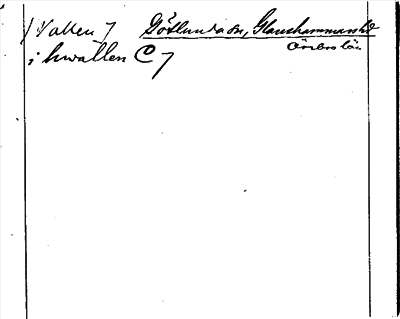 (Vallen) Götlunda sn, Glanshammars hd
Örebro län
i hwallen C)